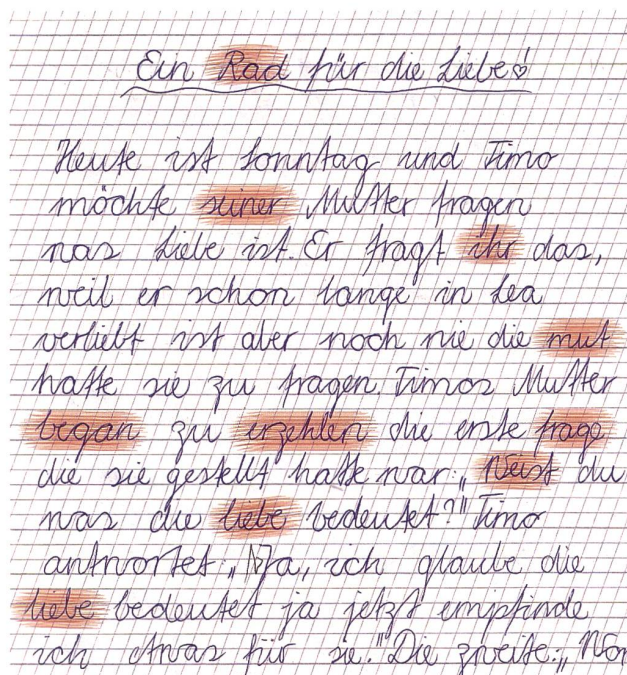 Ein Rad für die Liebe♡!
Heute ist Sonntag und Timo
möchte seiner Mutter fragen
was Liebe ist. Er fragt ihr das,
weil er schon lange in Lea
verliebt ist aber noch nie die mut
hatte sie zu fragen. Timos Mutter
began zu erzehlen die erste frage
die sie gestellt hatte war: „Weist du
was die liebe bedeutet?" Timo
antwortet: „Ja, ich glaube die
liebe bedeutet ja jetzt empfinde
ich etwas für sie." Die zweite: „